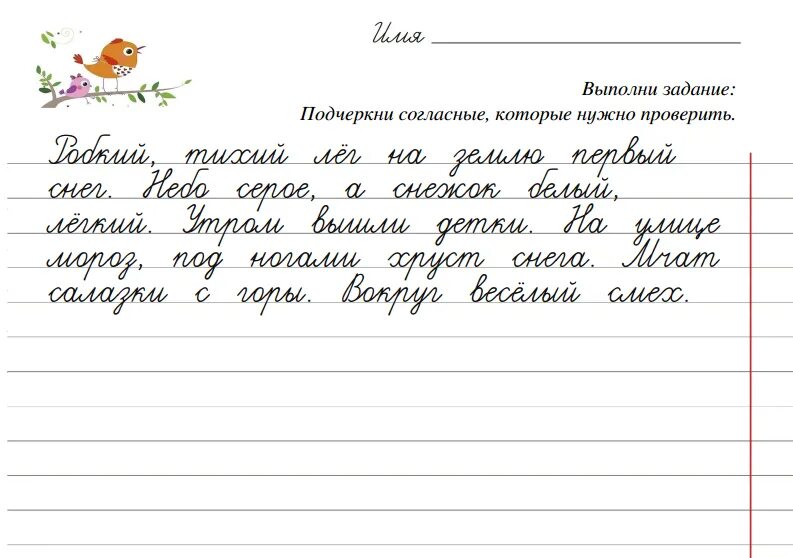 Имя
Выполни задание:
Подчеркни согласные, которые нужно проверить.
Робкий, тихий лёг на землю первый
снег. Небо серое, а снежок белый,
лёгкий. Утром вышли детки. На улице
мороз, под ногами хруст снега. Мчат
салазки с горы. Вокруг весёлый смех.